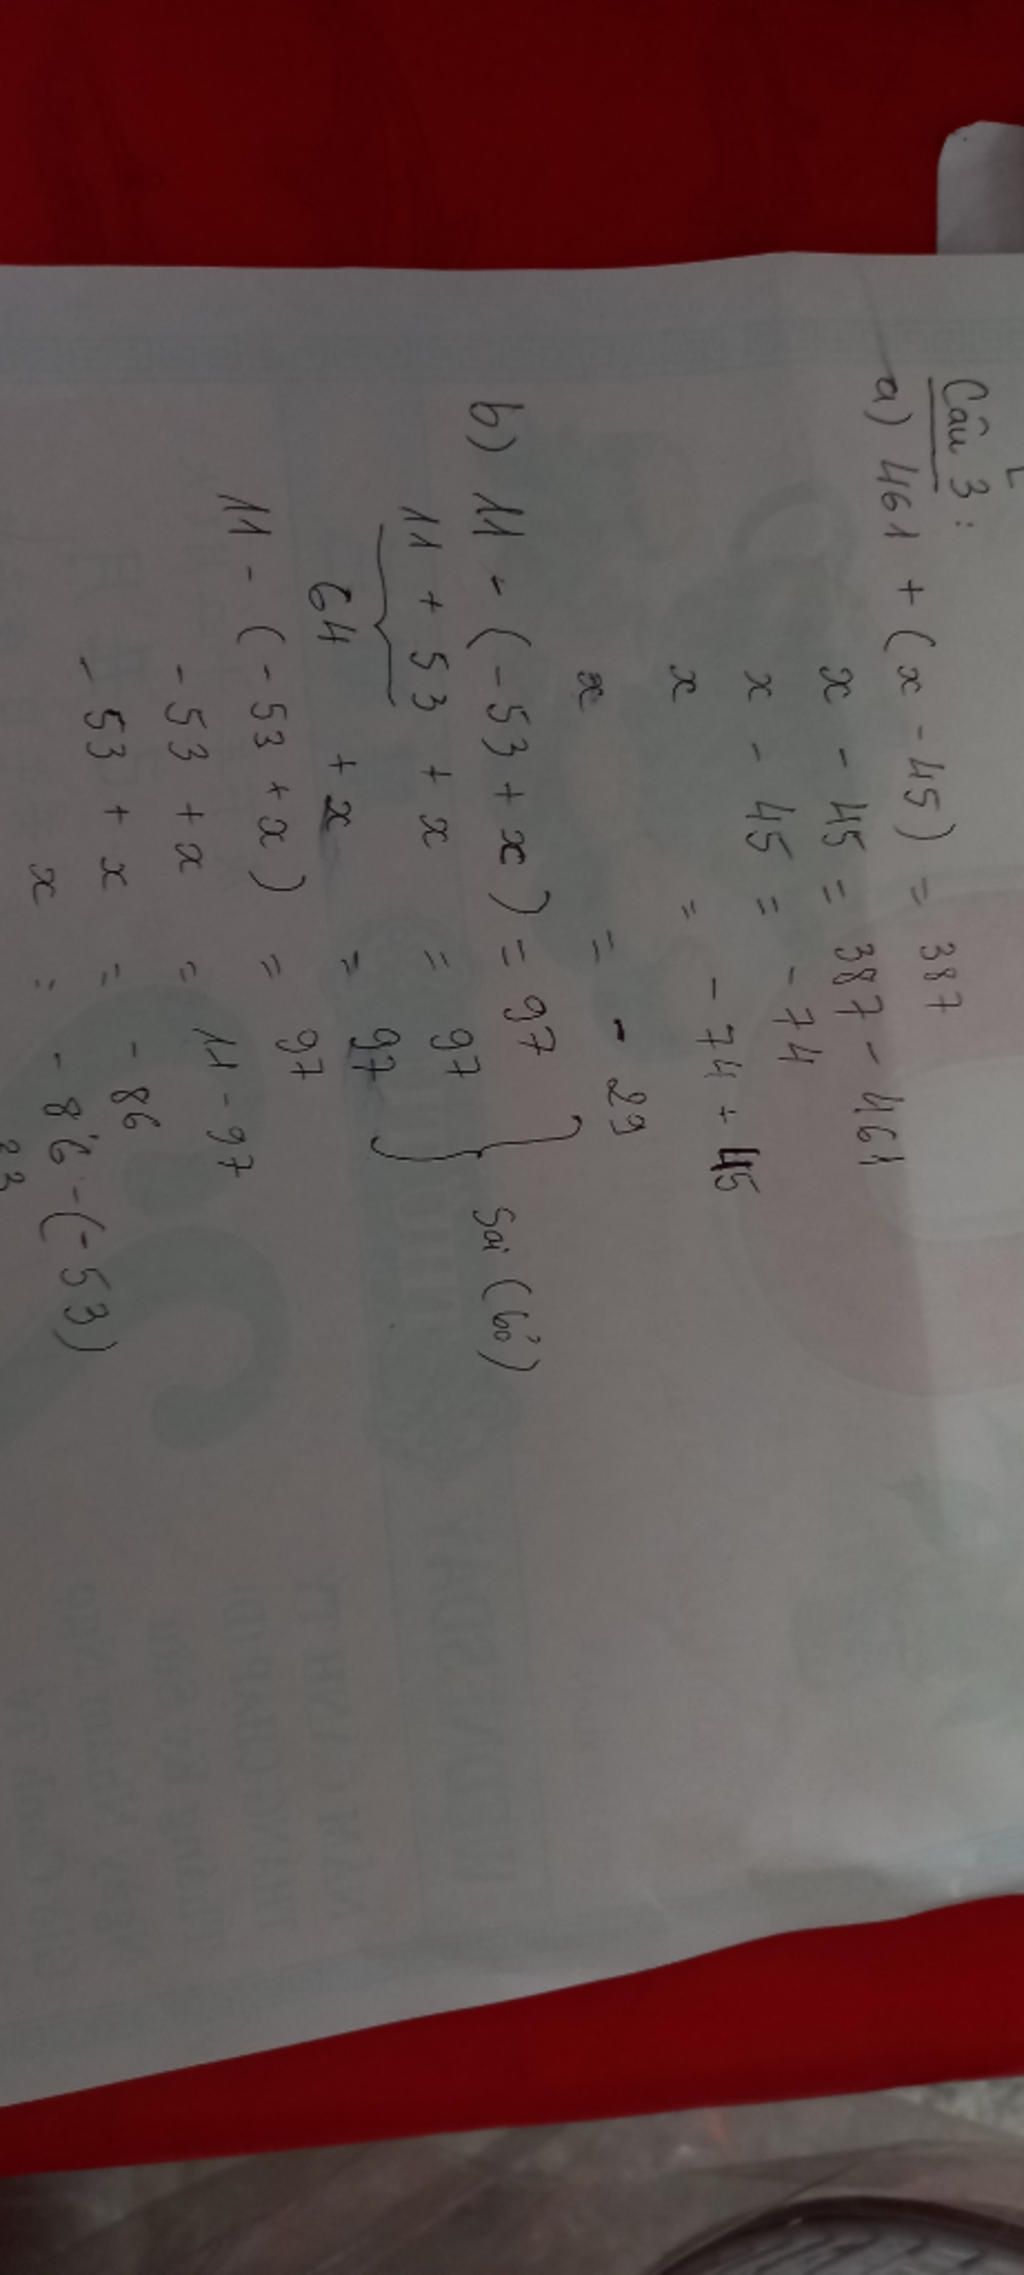 Câu 3:
a) 461 + (x - 45) = 387
x - 45 = 387 - 461
x - 45 = - 74
x = - 74 + 45
x = - 29
b) 11 - (- 53 + x) = 97
11 + 53 + x = 97
64 + x = 97
Sai (bỏ)
11 - (- 53 + x) = 97
- 53 + x = 11 - 97
- 53 + x = - 86
x = - 86 - (- 53)